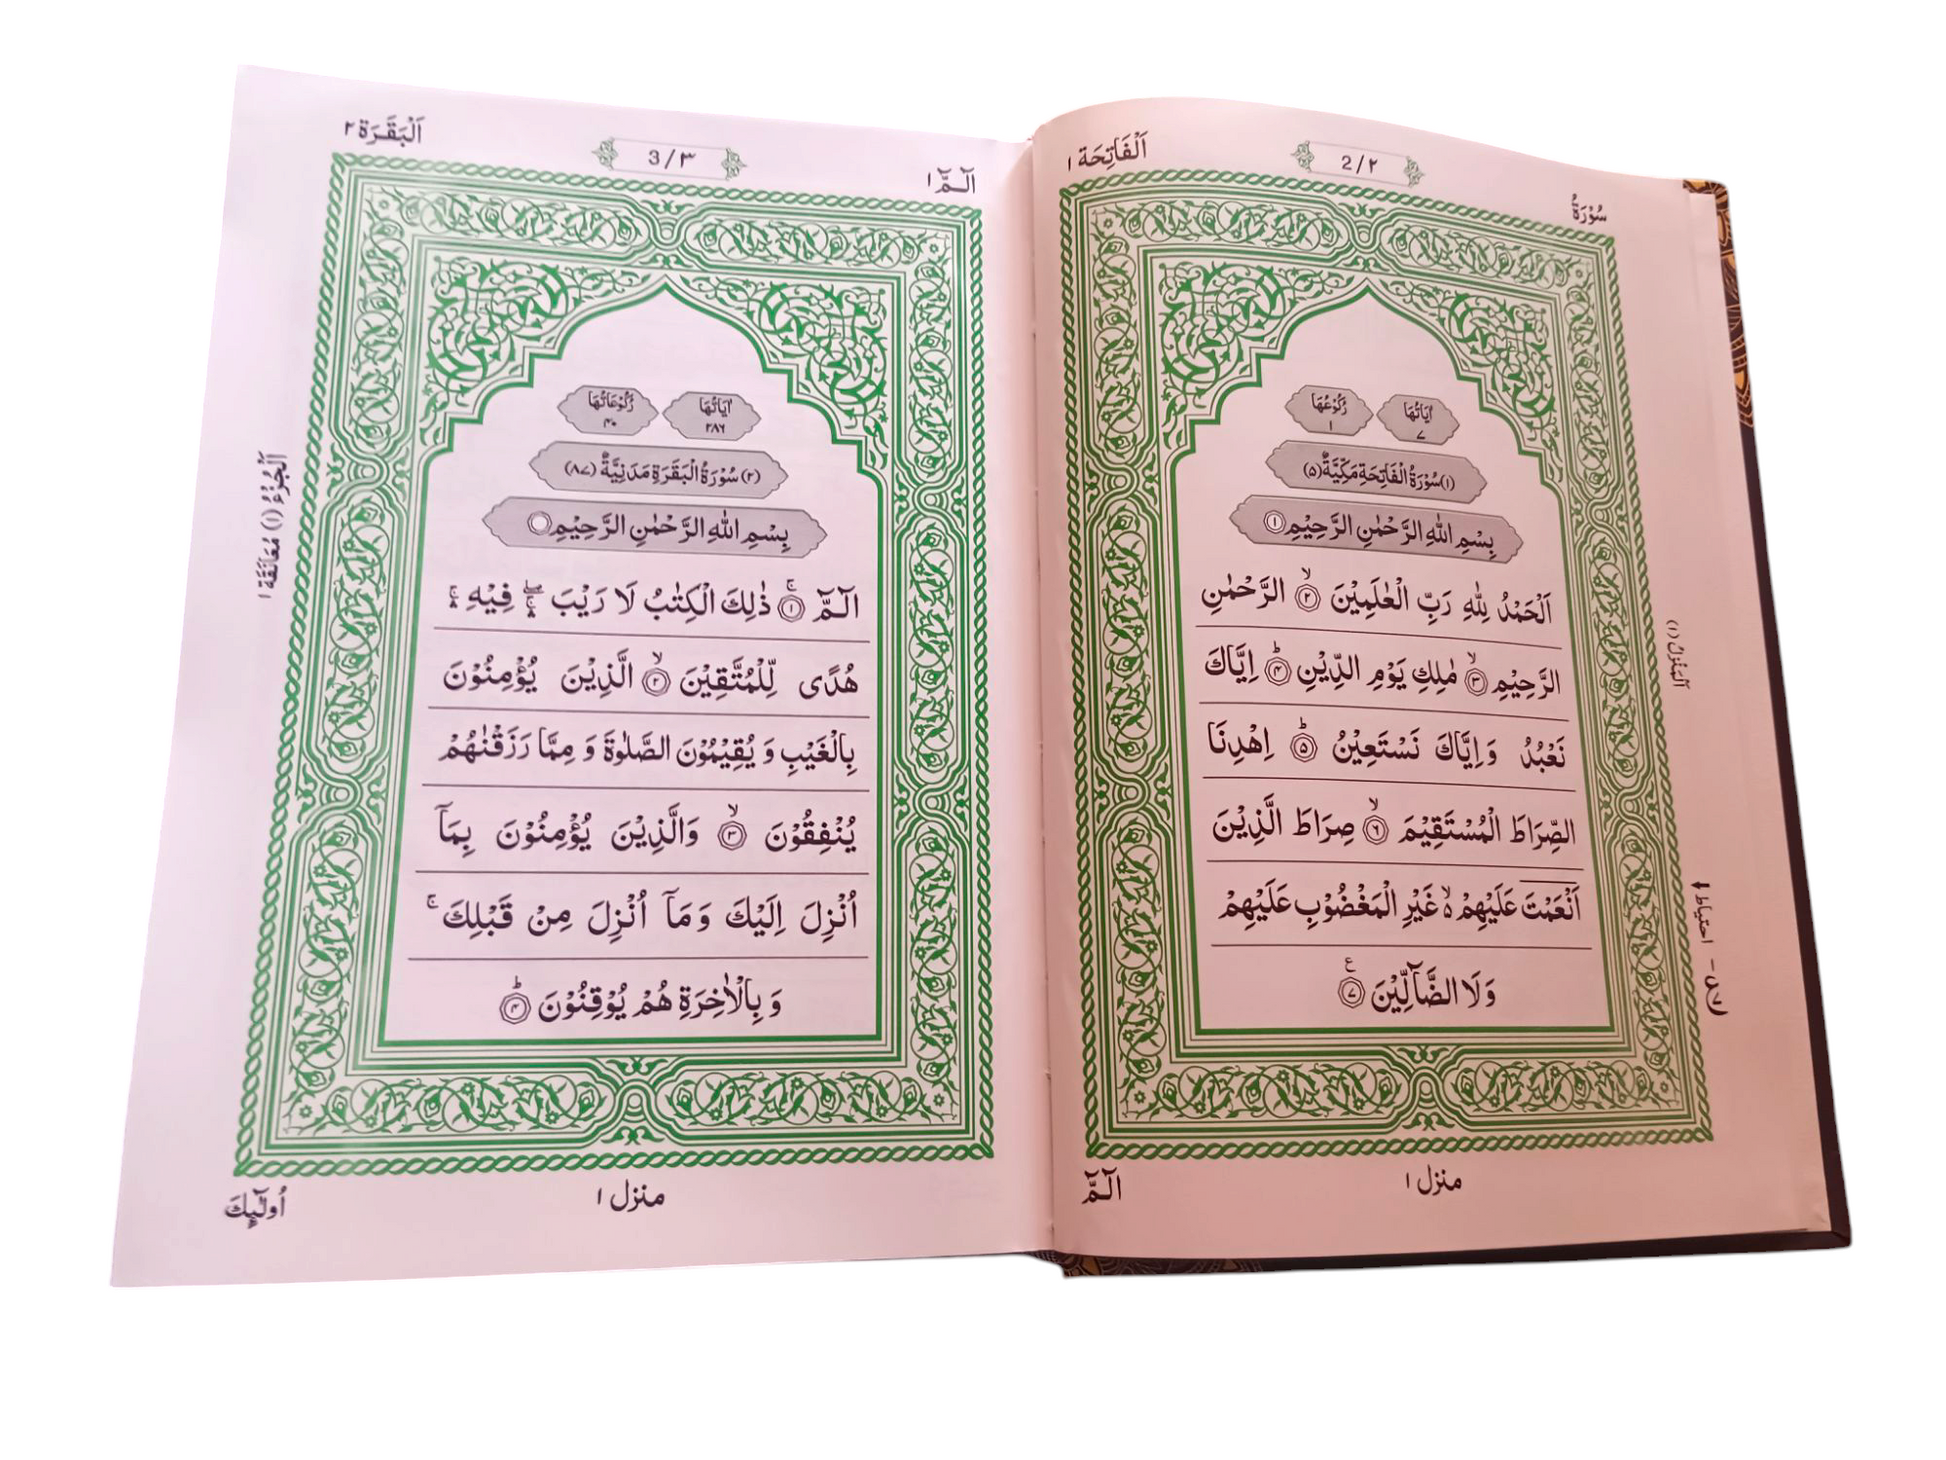 سُوْرَةُ
2/۲
اَلْفَاتِحَة ۱
اٰيَاتُهَا ۷
رُكُوْعُهَا ۱
(۱) سُوْرَةُ الْفَاتِحَةِ مَكِّيَّةٌ (۵)
بِسْمِ اللّٰهِ الرَّحْمٰنِ الرَّحِيْمِ ۱
اَلْحَمْدُ لِلّٰهِ رَبِّ الْعٰلَمِيْنَ ۙ ۲ الرَّحْمٰنِ
الرَّحِيْمِ ۙ ۳ مٰلِكِ يَوْمِ الدِّيْنِ ؕ ۴ اِيَّاكَ
نَعْبُدُ وَاِيَّاكَ نَسْتَعِيْنُ ؕ ۵ اِهْدِنَا
الصِّرَاطَ الْمُسْتَقِيْمَ ۙ ۶ صِرَاطَ الَّذِيْنَ
اَنْعَمْتَ عَلَيْهِمْ ۙ۬ غَيْرِ الْمَغْضُوْبِ عَلَيْهِمْ
وَلَا الضَّآلِّيْنَ ۷ ع
اَلْمَنْزِلُ (۱)
احتیاط
منزل ۱
الٓمّٓ
الٓمّٓ ۱
3/۳
اَلْبَقَرَة ۲
اٰيَاتُهَا ۲۸۶
رُكُوْعَاتُهَا ۴۰
(۲) سُوْرَةُ الْبَقَرَةِ مَدَنِيَّةٌ (۸۷)
بِسْمِ اللّٰهِ الرَّحْمٰنِ الرَّحِيْمِ
الٓمّٓ ۚ ۱ ذٰلِكَ الْكِتٰبُ لَا رَيْبَ ۛۖ فِيْهِ ۛۚ
هُدًى لِّلْمُتَّقِيْنَ ۙ ۲ الَّذِيْنَ يُؤْمِنُوْنَ
بِالْغَيْبِ وَ يُقِيْمُوْنَ الصَّلٰوةَ وَ مِمَّا رَزَقْنٰهُمْ
يُنْفِقُوْنَ ۙ ۳ وَالَّذِيْنَ يُؤْمِنُوْنَ بِمَآ
اُنْزِلَ اِلَيْكَ وَ مَآ اُنْزِلَ مِنْ قَبْلِكَ ۚ
وَ بِالْاٰخِرَةِ هُمْ يُوْقِنُوْنَ ؕ ۴
اَلْجُزْءُ (۱) مُعَانَقَة ۱
منزل ۱
اُولٰٓئِكَ